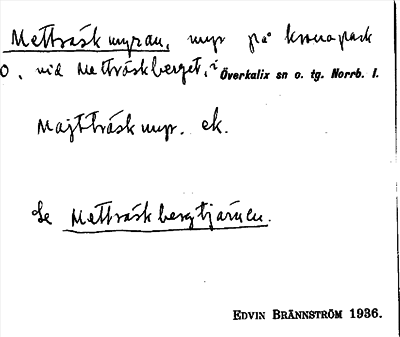 Metträskmyran, myr på kronopark
O. vid Metträskberget, i Överkalix sn o. tg. Norrb. l.
Majtträskmyr. ek.
Se Metträskbergtjärnen.
EDVIN BRÄNNSTRÖM 1936.